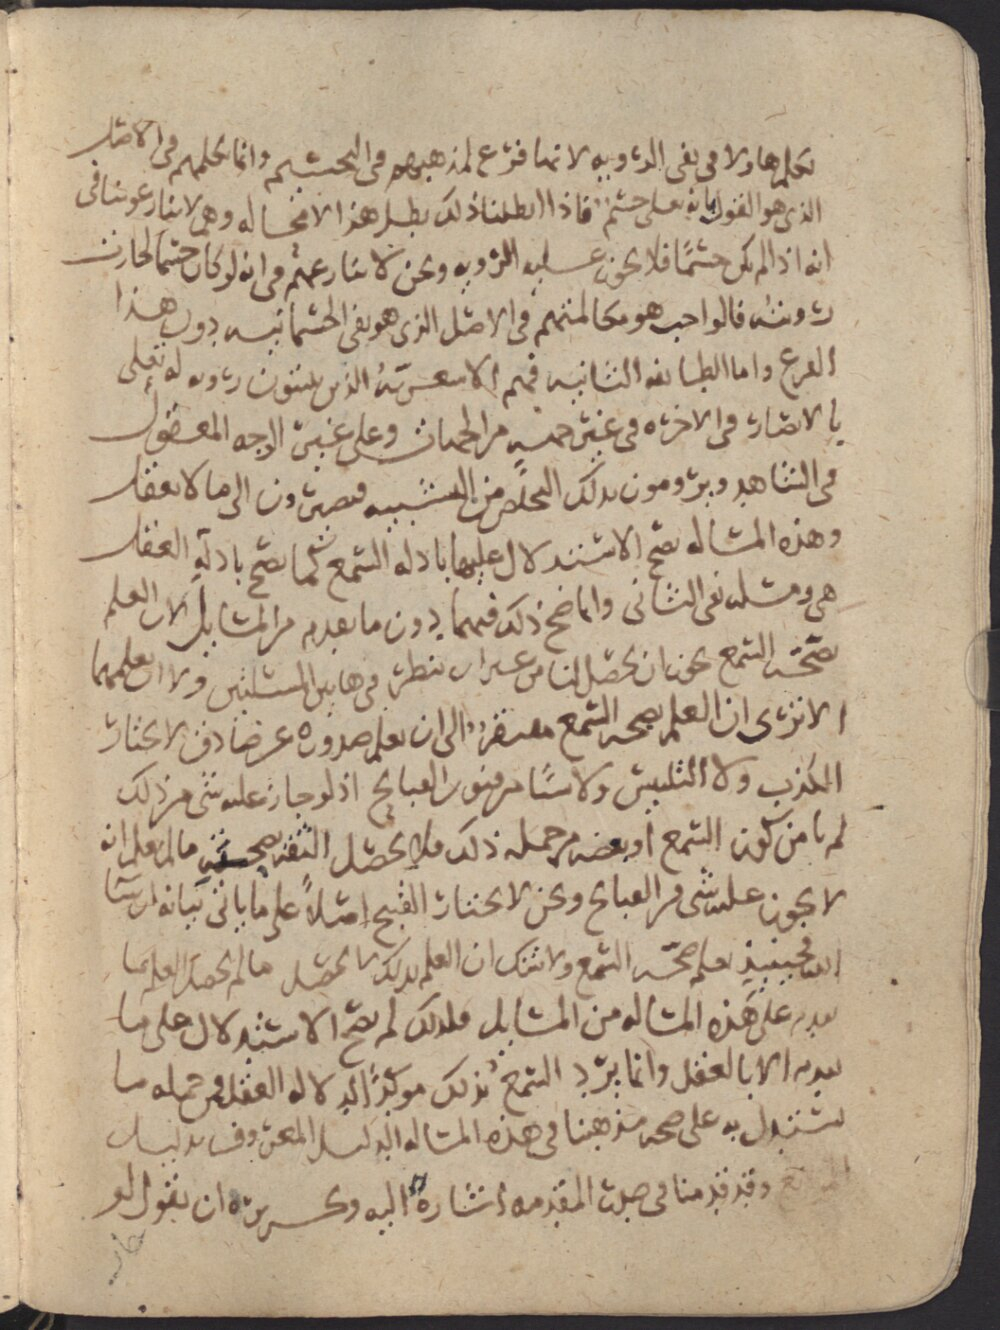 نكلم هاولا في نفي الروية لانها فرع لمذهبهم في التجسيم وانما نكلمهم في الاصل
الذي هو القول بانه تعالى جسم فاذا ابطلنا ذلك بطل هذا لامحاله وهم لا ينازعوننا في
انه اذا لم يكن جسمًا فلا يجوز عليه الرويه ونحن لا ننازعهم في انه لو كان جسمًا لجازت
رويته فالواجب هو مكالمتهم في الاصل الذي هو نفي الجسمانيه دون هذا
الفرع واما الطايفه الثانيه فهم الاشعريّةُ الذين يثبتون رويه له تعلى
بالابصار في الاخره في غير جهه من الجهات وعلى غير الوجه المعقول
في الشاهد ويرومون بذلك التخلص من التشبيه فيصيرون الى ما لا يعقل
وهذه المساله يصح الاستدلال عليها بادله السمع كما يصح بادلة العقل
هي ومسله نفي الثاني وانما صح ذلك فيهما دون ما تقدم من المسايل لان العلم
بصحّه السمع يجوز ان يحصل لنا من غير ان ننظر في هاتين المسئلتين ولا نعلمهما
الا ترى ان العلم بصحه السمع مفتقر الى ان نعلم صدوره عن صادق لا يختار
الكذب ولا التلبيس ولا شيًا من فنون القبايح اذ لو جاز عليه شي من ذلك
لم نامن كون السمع او بعضه من جمله ذلك فلا يحصل الثقه بصحته ما لم نعلم انه
لا يجوز عليه شي من القبايح ونحن لا يختار القبيح اصلاً على ما ياتي بيانه ان شا
الله فحينيذٍ نعلم صحّه السمع ولا شك ان العلم بذلك لا يحصل ما لم يحصل العلم بما
تقدم على هذه المساله من المسايل فلذلك لم يصح الاستدلال على ما
تقدم الا بالعقل وانما يرد السمع بذلك موكدًا لدلاله العقل فمن جمله ما
يستدل به على صحه مذهبنا في هذه المساله الدليل المعروف بدليل
وقد قدمنا في صدر المقدمه اشارة اليه وتحريره ان نقول لو
جاز